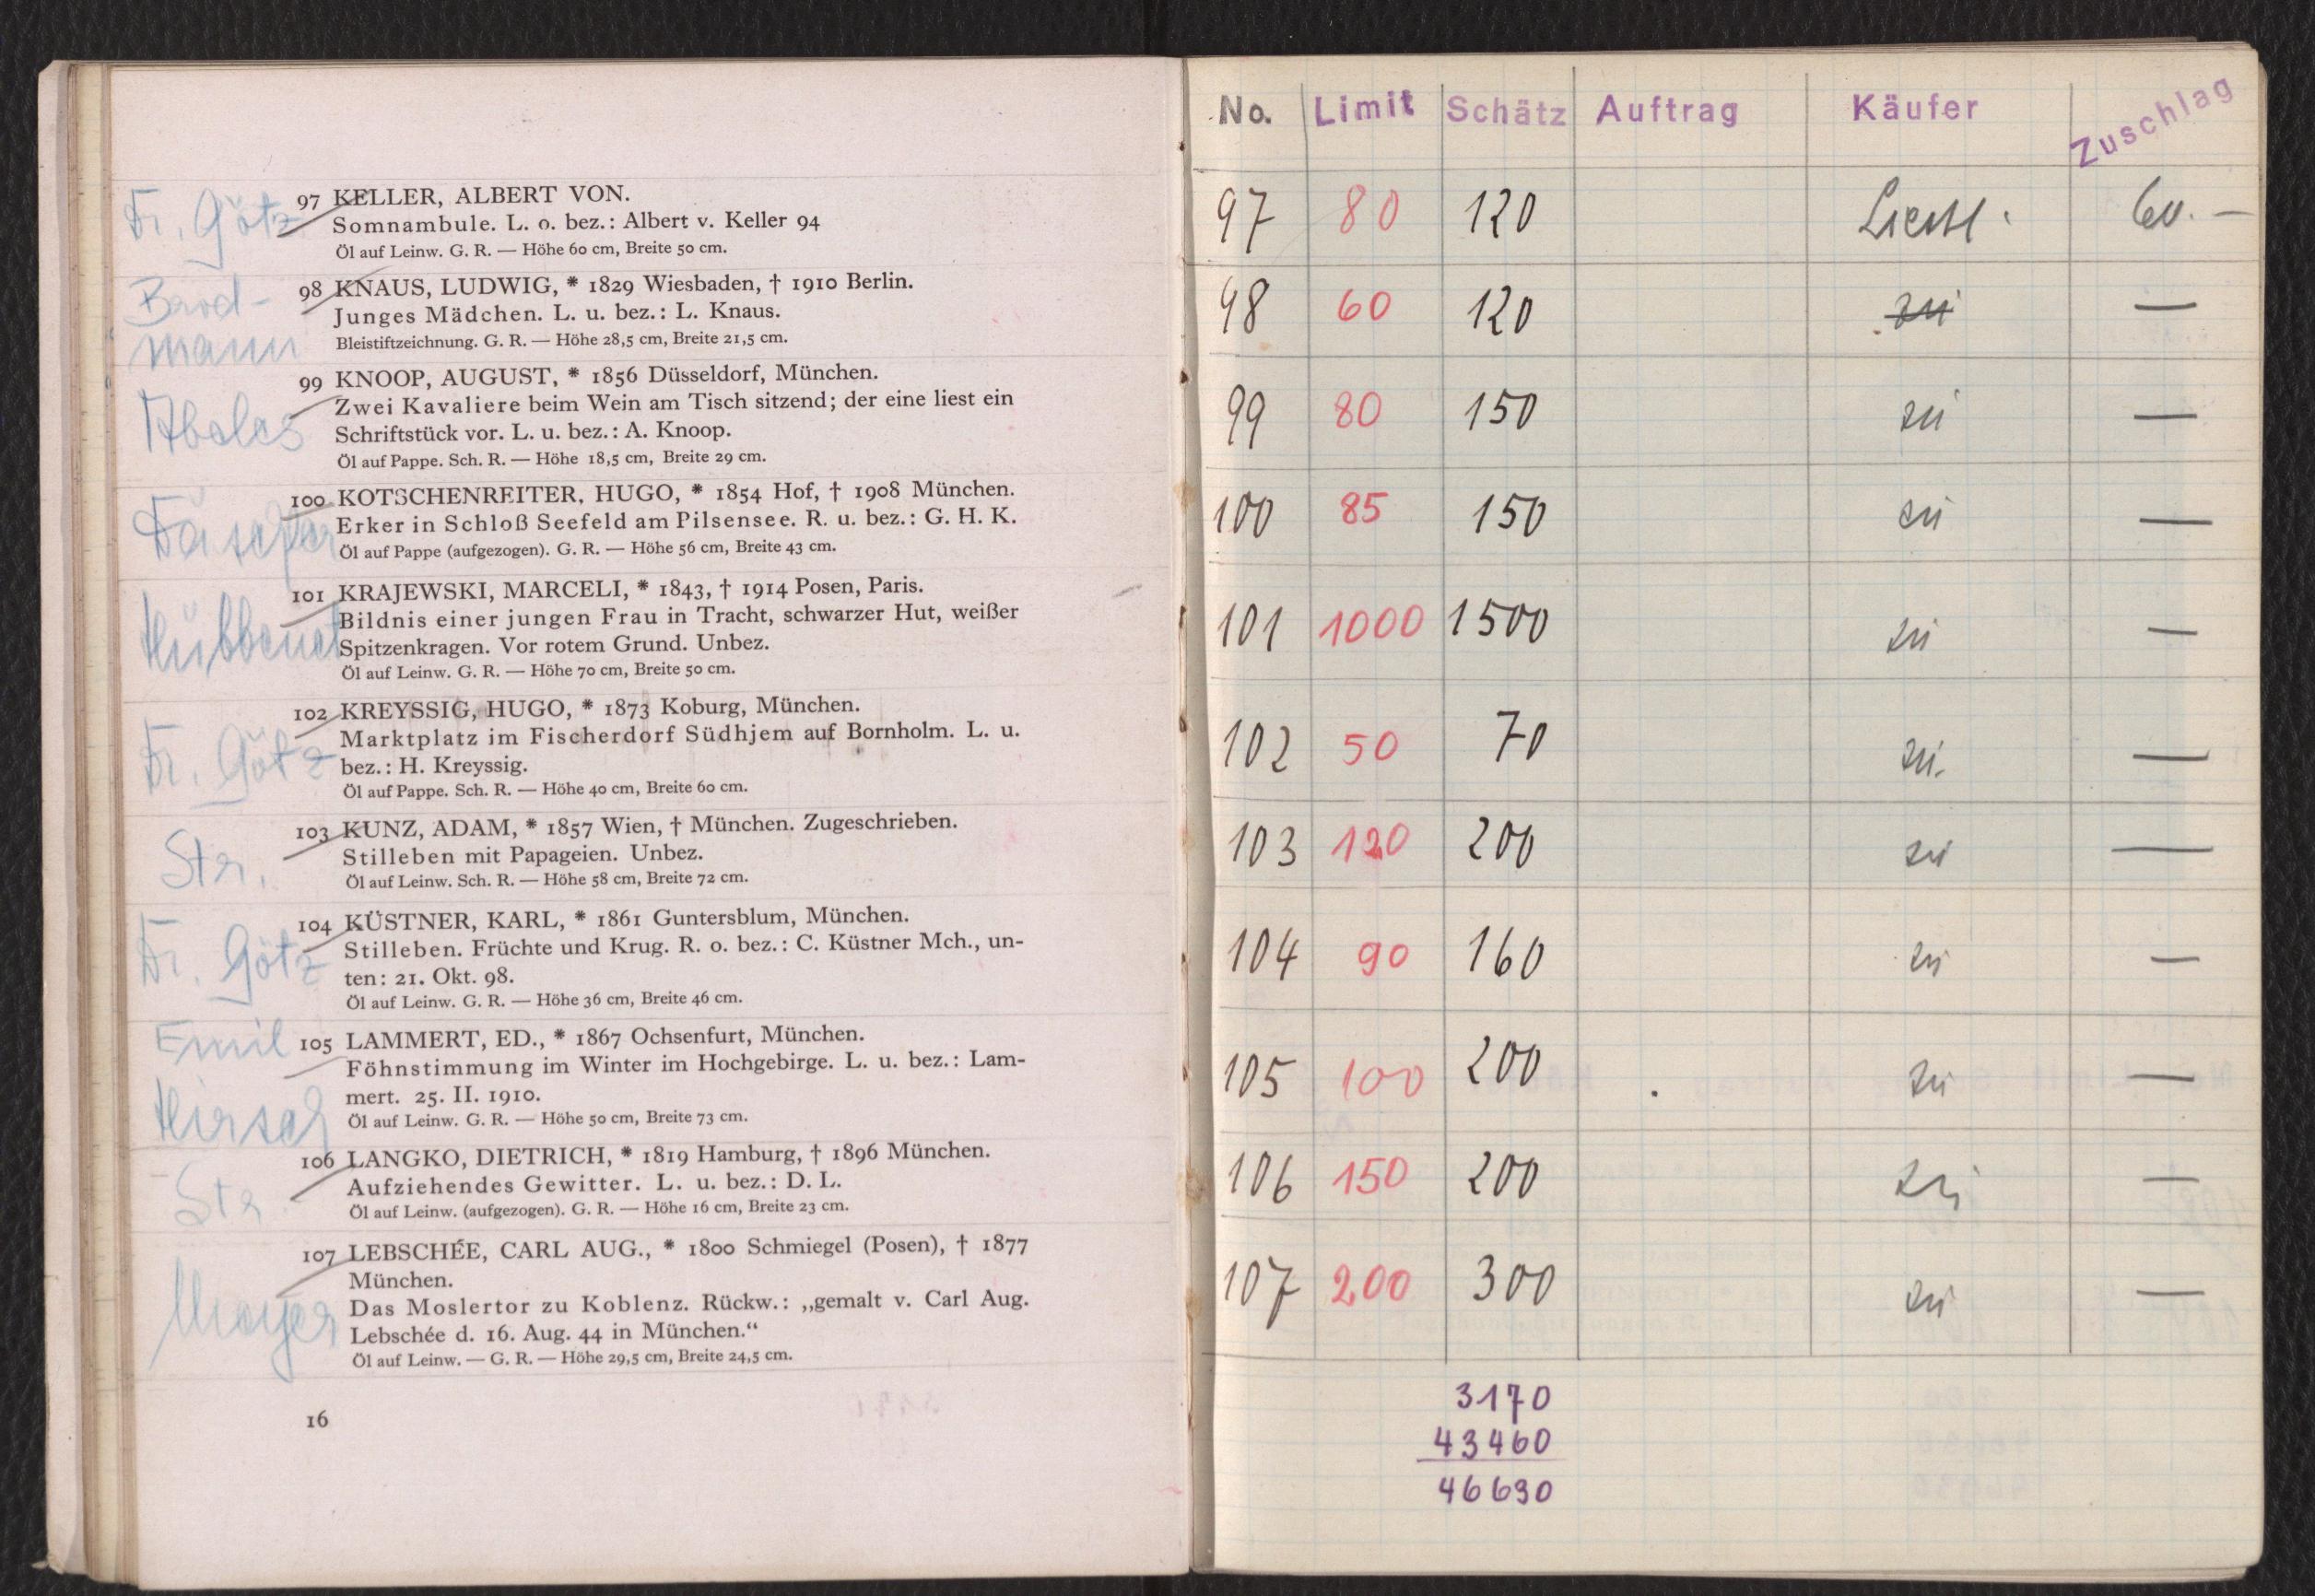 Fr. Götz
97 KELLER, ALBERT VON.
Somnambule. L. o. bez.: Albert v. Keller 94
Öl auf Leinw. G. R. — Höhe 60 cm, Breite 50 cm.
Brod-
mann
98 KNAUS, LUDWIG, * 1829 Wiesbaden, † 1910 Berlin.
Junges Mädchen. L. u. bez.: L. Knaus.
Bleistiftzeichnung. G. R. — Höhe 28,5 cm, Breite 21,5 cm.
Abeles
99 KNOOP, AUGUST, * 1856 Düsseldorf, München.
Zwei Kavaliere beim Wein am Tisch sitzend; der eine liest ein
Schriftstück vor. L. u. bez.: A. Knoop.
Öl auf Pappe. Sch. R. — Höhe 18,5 cm, Breite 29 cm.
100 KOTSCHENREITER, HUGO, * 1854 Hof, † 1908 München.
Erker in Schloß Seefeld am Pilsensee. R. u. bez.: G. H. K.
Öl auf Pappe (aufgezogen). G. R. — Höhe 56 cm, Breite 43 cm.
Hübbenet
101 KRAJEWSKI, MARCELI, * 1843, † 1914 Posen, Paris.
Bildnis einer jungen Frau in Tracht, schwarzer Hut, weißer
Spitzenkragen. Vor rotem Grund. Unbez.
Öl auf Leinw. G. R. — Höhe 70 cm, Breite 50 cm.
Fr. Götz
102 KREYSSIG, HUGO, * 1873 Koburg, München.
Marktplatz im Fischerdorf Südhjem auf Bornholm. L. u.
bez.: H. Kreyssig.
Öl auf Pappe. Sch. R. — Höhe 40 cm, Breite 60 cm.
Str.
103 KUNZ, ADAM, * 1857 Wien, † München. Zugeschrieben.
Stilleben mit Papageien. Unbez.
Öl auf Leinw. Sch. R. — Höhe 58 cm, Breite 72 cm.
Fr. Götz
104 KÜSTNER, KARL, * 1861 Guntersblum, München.
Stilleben. Früchte und Krug. R. o. bez.: C. Küstner Mch., un-
ten: 21. Okt. 98.
Öl auf Leinw. G. R. — Höhe 36 cm, Breite 46 cm.
Emil
Hirsch
105 LAMMERT, ED., * 1867 Ochsenfurt, München.
Föhnstimmung im Winter im Hochgebirge. L. u. bez.: Lam-
mert. 25. II. 1910.
Öl auf Leinw. G. R. — Höhe 50 cm, Breite 73 cm.
Str.
106 LANGKO, DIETRICH, * 1819 Hamburg, † 1896 München.
Aufziehendes Gewitter. L. u. bez.: D. L.
Öl auf Leinw. (aufgezogen). G. R. — Höhe 16 cm, Breite 23 cm.
Mayer
107 LEBSCHÉE, CARL AUG., * 1800 Schmiegel (Posen), † 1877
München.
Das Moslertor zu Koblenz. Rückw.: „gemalt v. Carl Aug.
Lebschée d. 16. Aug. 44 in München.“
Öl auf Leinw. — G. R. — Höhe 29,5 cm, Breite 24,5 cm.
16
No. Limit Schätz Auftrag Käufer Zuschlag
97 80 120 60.—
98 60 120 zu —
99 80 150 zu —
100 85 150 zu —
101 1000 1500 zu —
102 50 70 zu. —
103 120 200 zu —
104 90 160 zu —
105 100 200 zu —
106 150 200 zu —
107 200 300 zu —
3170
43460
46630